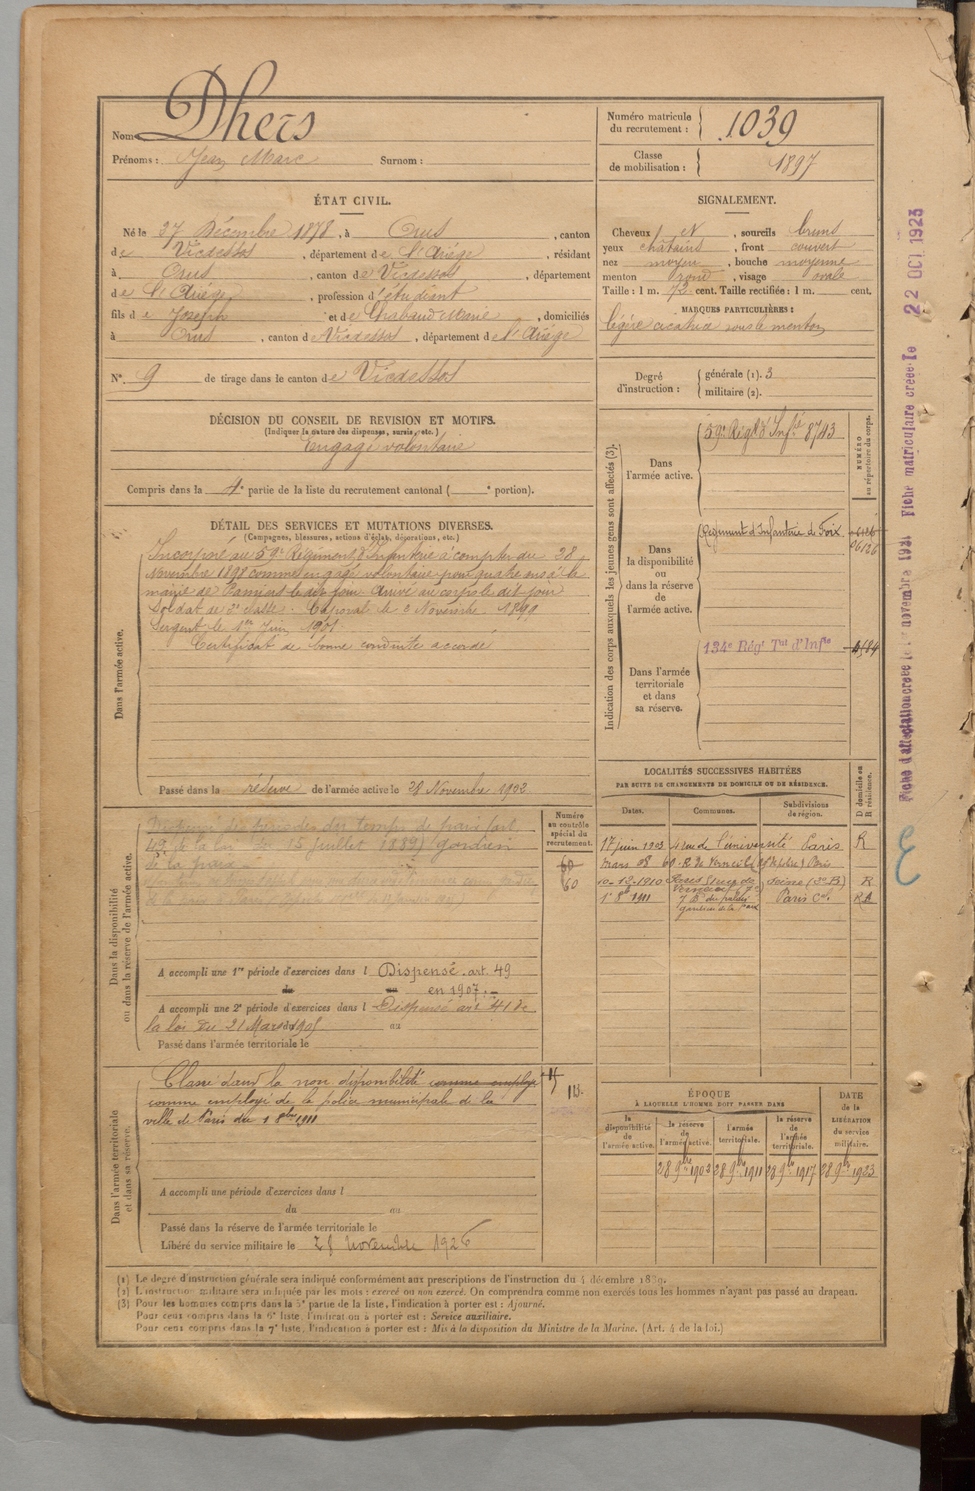 Nom Dhers
Prénoms : Jean Marc Surnom :
Numéro matricule du recrutement : 1039
Classe de mobilisation : 1897
ÉTAT CIVIL.
Né le 27 Décembre 1878, à Orus, canton
de Vicdessos, département de l'Ariège, résidant
à Orus, canton de Vicdessos, département
de l'Ariège, profession d'étudiant
fils de Joseph et de Chabaud Marie, domiciliés
à Orus, canton de Vicdessos, département de l'Ariège
N° 9 de tirage dans le canton de Vicdessos
SIGNALEMENT.
Cheveux et, sourcils bruns
yeux châtains, front couvert
nez moyen, bouche moyenne
menton rond, visage ovale
Taille : 1 m. 72 cent. Taille rectifiée : 1 m. cent.
MARQUES PARTICULIÈRES :
légère cicatrice sous le menton
Degré d'instruction : générale (1). 3
militaire (2).
DÉCISION DU CONSEIL DE REVISION ET MOTIFS.
(Indiquer la nature des dispenses, sursis, etc.)
Engagé volontaire
Compris dans la 4e partie de la liste du recrutement cantonal ( e portion).
DÉTAIL DES SERVICES ET MUTATIONS DIVERSES.
(Campagnes, blessures, actions d'éclat, décorations, etc.)
Dans l'armée active.
Incorporé au 59e Régiment d'Infanterie à compter du 28
Novembre 1898 comme engagé volontaire pour quatre ans à la
mairie de Pamiers le dit jour. Arrivé au corps le dit jour
Soldat de 2e classe. Caporal le 2 Novembre 1899
Sergent le 1er Juin 1901
Certificat de bonne conduite accordé
Passé dans la réserve de l'armée active le 28 Novembre 1902
Indication des corps auxquels les jeunes gens sont affectés (3).
NUMÉRO au répertoire du corps.
Dans l'armée active.
59e Régt d'Infie 8743
Dans la disponibilité ou dans la réserve de l'armée active.
Régiment d'Infanterie de Foix
06126
Dans l'armée territoriale et dans sa réserve.
134e Régt Tal d'Infie
LOCALITÉS SUCCESSIVES HABITÉES
PAR SUITE DE CHANGEMENTS DE DOMICILE OU DE RÉSIDENCE.
Dates. Communes. Subdivisions de région. D domicile ou R résidence.
17 juin 1903 rue de l'université Paris R
mars 08 60 R. de Verneuil Paris
10-12-1910 Seine (3e B) R
1er 8bre 1911 gardien de la Paix Paris
Dans la disponibilité ou dans la réserve de l'armée active.
Numéro au contrôle spécial du recrutement.
60
60
de la loi du 15 juillet 1889) gardien
de la paix
A accompli une 1re période d'exercices dans l Dispensé. art. 49
du au en 1907.
A accompli une 2e période d'exercices dans l Dispensé art 41 de
la loi du 21 Mars 1905 au
Passé dans l'armée territoriale le
Dans l'armée territoriale et dans sa réserve.
Classé dans la non disponibilité comme employé
comme employé de la police municipale de la
ville de Paris du 1 8bre 1911
A accompli une période d'exercices dans l
du au
Passé dans la réserve de l'armée territoriale le
Libéré du service militaire le 28 novembre 1926
ÉPOQUE
À LAQUELLE L'HOMME DOIT PASSER DANS
la disponibilité de l'armée active. la réserve de l'armée active. l'armée territoriale. la réserve de l'armée territoriale.
DATE de la LIBÉRATION du service militaire.
28 9bre 1902 28 9bre 1911 28 9bre 1917 28 9bre 1923
(1) Le degré d'instruction générale sera indiqué conformément aux prescriptions de l'instruction du 4 décembre 1889.
(2) L'instruction militaire sera indiquée par les mots : exercé ou non exercé. On comprendra comme non exercés tous les hommes n'ayant pas passé au drapeau.
(3) Pour les hommes compris dans la 5e partie de la liste, l'indication à porter est : Ajourné.
Pour ceux compris dans la 6e liste, l'indication à porter est : Service auxiliaire.
Pour ceux compris dans la 7e liste, l'indication à porter est : Mis à la disposition du Ministre de la Marine. (Art. 4 de la loi.)
Fiche matriculaire créée le 22 OCT 1923
Fiche d'affectation créée le 1er novembre 1921